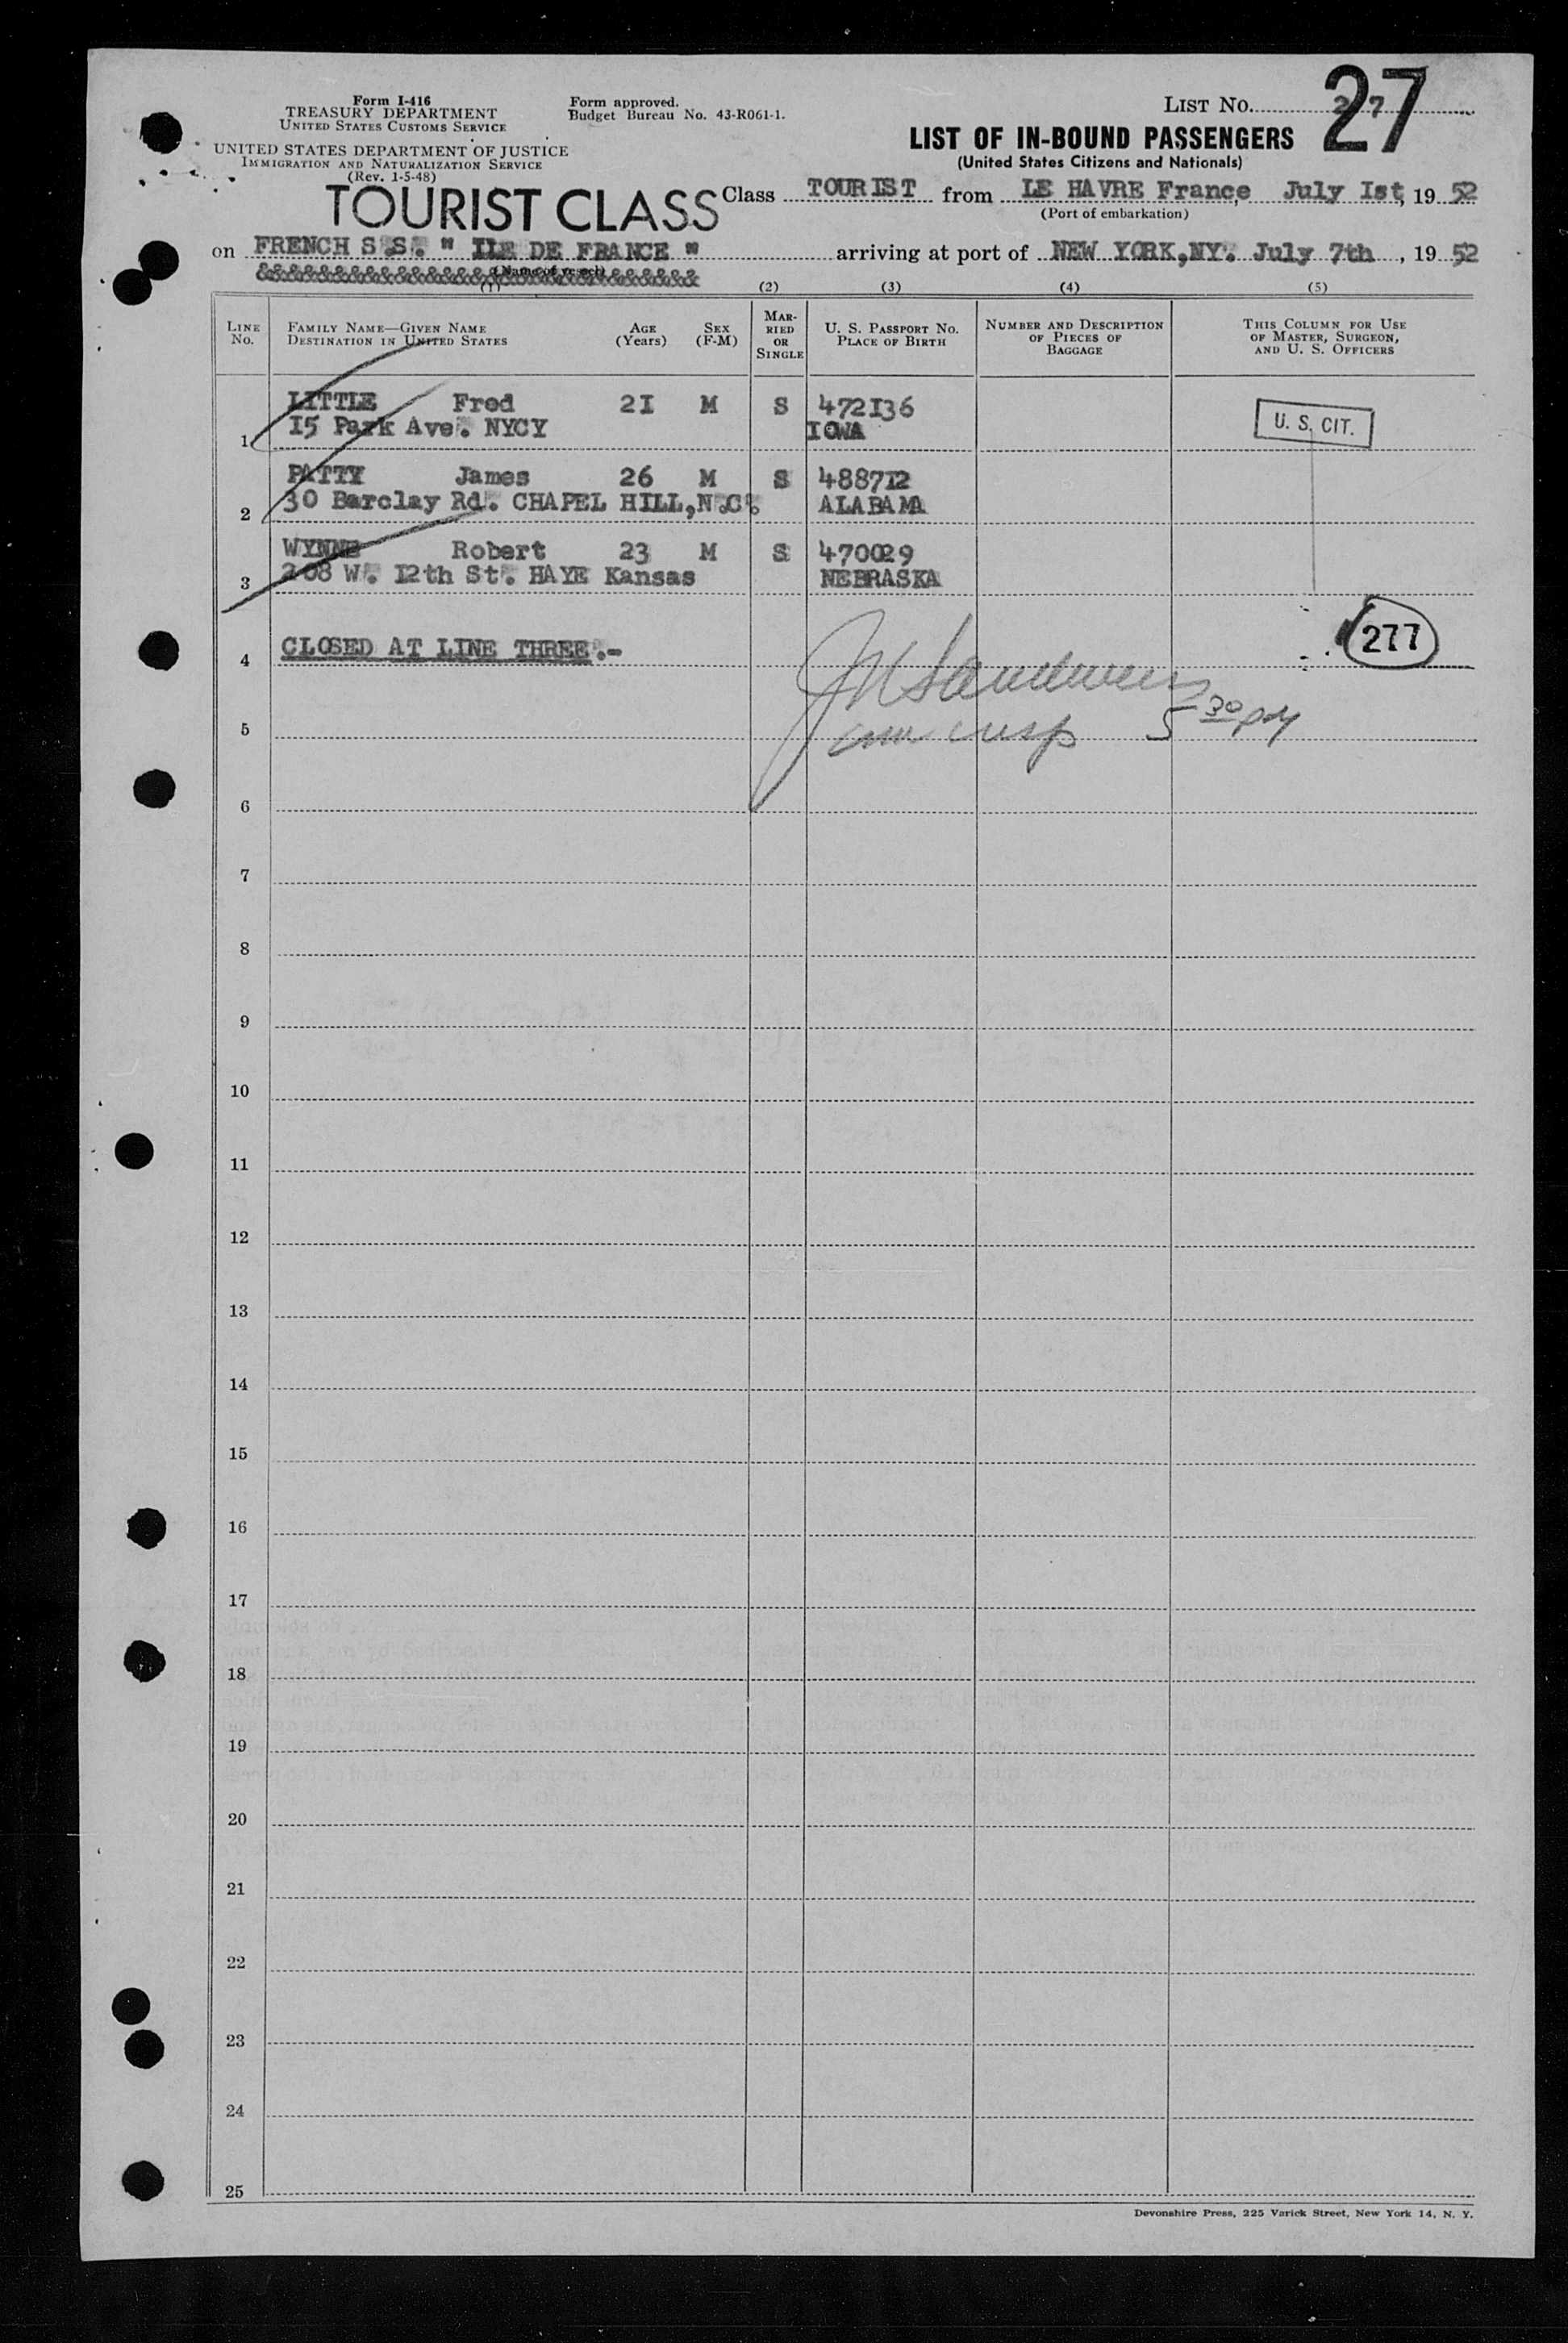 Form I-416
TREASURY DEPARTMENT
UNITED STATES CUSTOMS SERVICE
UNITED STATES DEPARTMENT OF JUSTICE
IMMIGRATION AND NATURALIZATION SERVICE
(Rev. 1-5-48)
Form approved.
Budget Bureau No. 43-R061-1.
LIST NO. 27
27
LIST OF IN-BOUND PASSENGERS
(United States Citizens and Nationals)
TOURIST CLASS
Class TOURIST from LE HAVRE France, July Ist, 19 52
(Port of embarkation)
on FRENCH S.S. " ILE DE FRANCE " arriving at port of NEW YORK,NY. July 7th , 19 52
&&&&&&&&&&&&&&&&&&&&&&&&&&&&&&&&&&&
(Name of vessel)
(1) (2) (3) (4) (5)
LINE No.
FAMILY NAME—GIVEN NAME
DESTINATION IN UNITED STATES
AGE (Years)
SEX (F-M)
MARRIED OR SINGLE
U. S. PASSPORT NO.
PLACE OF BIRTH
NUMBER AND DESCRIPTION OF PIECES OF BAGGAGE
THIS COLUMN FOR USE OF MASTER, SURGEON, AND U. S. OFFICERS
LITTLE Fred 2I M S 472I36
1 I5 Park Ave. NYCY IOWA
U. S. CIT.
PATTY James 26 M S 4887I2
2 30 Barclay Rd. CHAPEL HILL,N.C. ALABAMA
WYNNE Robert 23 M S 470029
3 208 W. I2th St. HAYE Kansas NEBRASKA
277
4 CLOSED AT LINE THREE.-
5 insp 5 30 PM
6
7
8
9
10
11
12
13
14
15
16
17
18
19
20
21
22
23
24
25
Devonshire Press, 225 Varick Street, New York 14, N. Y.